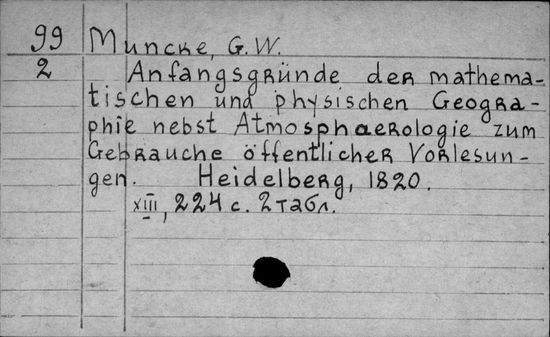 99 Muncke, G. W.
2 Anfangsgründe der mathema-
tischen und physischen Geogra-
phie nebst Atmosphaerologie zum
Gebrauche öffentlicher Vorlesun-
gen. Heidelberg, 1820.
XIII, 224 с. 2 табл.